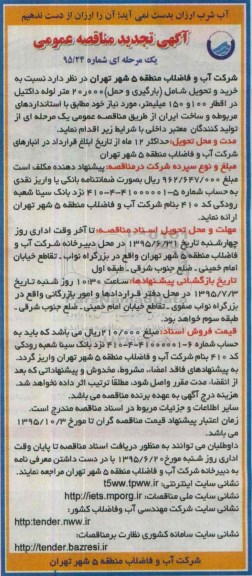 آب شرب ارزان بدست نمی آید؛ آن را ارزان از دست ندهیم
آگهی تجدید مناقصه عمومی
یک مرحله ای شماره ۹۵/۲۴
شرکت آب و فاضلاب منطقه ۵ شهر تهران در نظر دارد نسبت به
خرید و تحویل شامل (بارگیری و حمل) ۲۰۰۰۰ متر لوله داکتیل
در اقطار ۱۰۰ و ۱۵۰ میلیمتر، مورد نیاز خود مطابق با استانداردهای
مربوطه و ساخت ایران از طریق مناقصه عمومی یک مرحله ای از
تولید کنندگان معتبر داخلی با شرایط زیر اقدام نماید.
مدت و محل تحویل: حداکثر ۱۲ ماه از تاریخ ابلاغ قرارداد در انبارهای
شرکت آب و فاضلاب منطقه ۵ شهر تهران
مبلغ و نوع سپرده شرکت درمناقصه: پیشنهاد دهنده مکلف است
مبلغ ۹۶۲/۶۴۷/۰۰۰ ریال بصورت ضمانتنامه بانکی یا واریز نقدی
به حساب شماره ۵-۴۱۰۰۰۰۰۱-۴-۴۱۰ نزد بانک سینا شعبه
رودکی کد ۴۱۰ بنام شرکت آب و فاضلاب منطقه ۵ شهر تهران
ارائه نماید.
مهلت و محل تحویل اسناد مناقصه: تا آخر وقت اداری روز
چهارشنبه تاریخ ۱۳۹۵/۶/۳۱ در محل دبیرخانه شرکت آب و
فاضلاب منطقه ۵ شهر تهران واقع در بزرگراه نواب ـ تقاطع خیابان
امام خمینی ـ ضلع جنوب شرقی ـ طبقه اول
تاریخ بازگشائی پیشنهادها: ساعت ۱۰:۳۰ روز شنبه تاریخ
۱۳۹۵/۷/۳ در محل دفتر قراردادها و امور بازرگانی واقع در
بزرگراه نواب صفوی ـ تقاطع خیابان امام خمینی ـ ضلع جنوب شرقی ـ
طبقه سوم خواهد بود.
قیمت فروش اسناد: مبلغ ۲۱۰/۰۰۰ ریال می باشد که باید به
حساب شماره ۶-۴۱۰۰۰۰۰۱-۴-۴۱۰ نزد بانک سینا شعبه رودکی
کد ۴۱۰ بنام شرکت آب و فاضلاب منطقه ۵ شهر تهران واریز گردد.
به پیشنهادهای فاقد امضاء، مشروط، مخدوش و پیشنهاداتی که بعد
از انقضاء مدت مقرر واصل شود، مطلقا ترتیب اثر داده نخواهد شد.
هزینه درج آگهی به عهده برنده مناقصه می باشد.
سایر اطلاعات و جزئیات مربوط در اسناد مناقصه مندرج است.
زمان اعتبار پیشنهاد قیمت مناقصه گران تا مورخ ۱۳۹۵/۱۰/۳
می باشد.
داوطلبان می توانند به منظور دریافت اسناد مناقصه تا پایان وقت
اداری روز شنبه مورخ ۱۳۹۵/۶/۲۰ با در دست داشتن معرفی نامه
به دبیرخانه شرکت آب و فاضلاب منطقه ۵ شهر تهران مراجعه نمایند.
نشانی سایت اینترنتی: t5ww.tpww.ir
نشانی سایت ملی مناقصات: http://iets.mporg.ir
نشانی سایت شرکت مهندسی آب وفاضلاب کشور:
http:tender.nww.ir
نشانی سایت سامانه کشوری نظارت برمناقصات:
http://tender.bazresi.ir
شرکت آب و فاضلاب منطقه ۵ شهر تهران